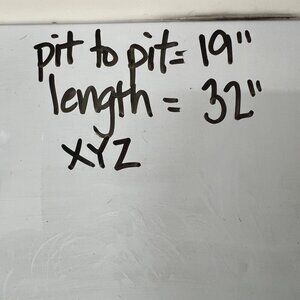 pit to pit= 19"
length = 32"
XYZ